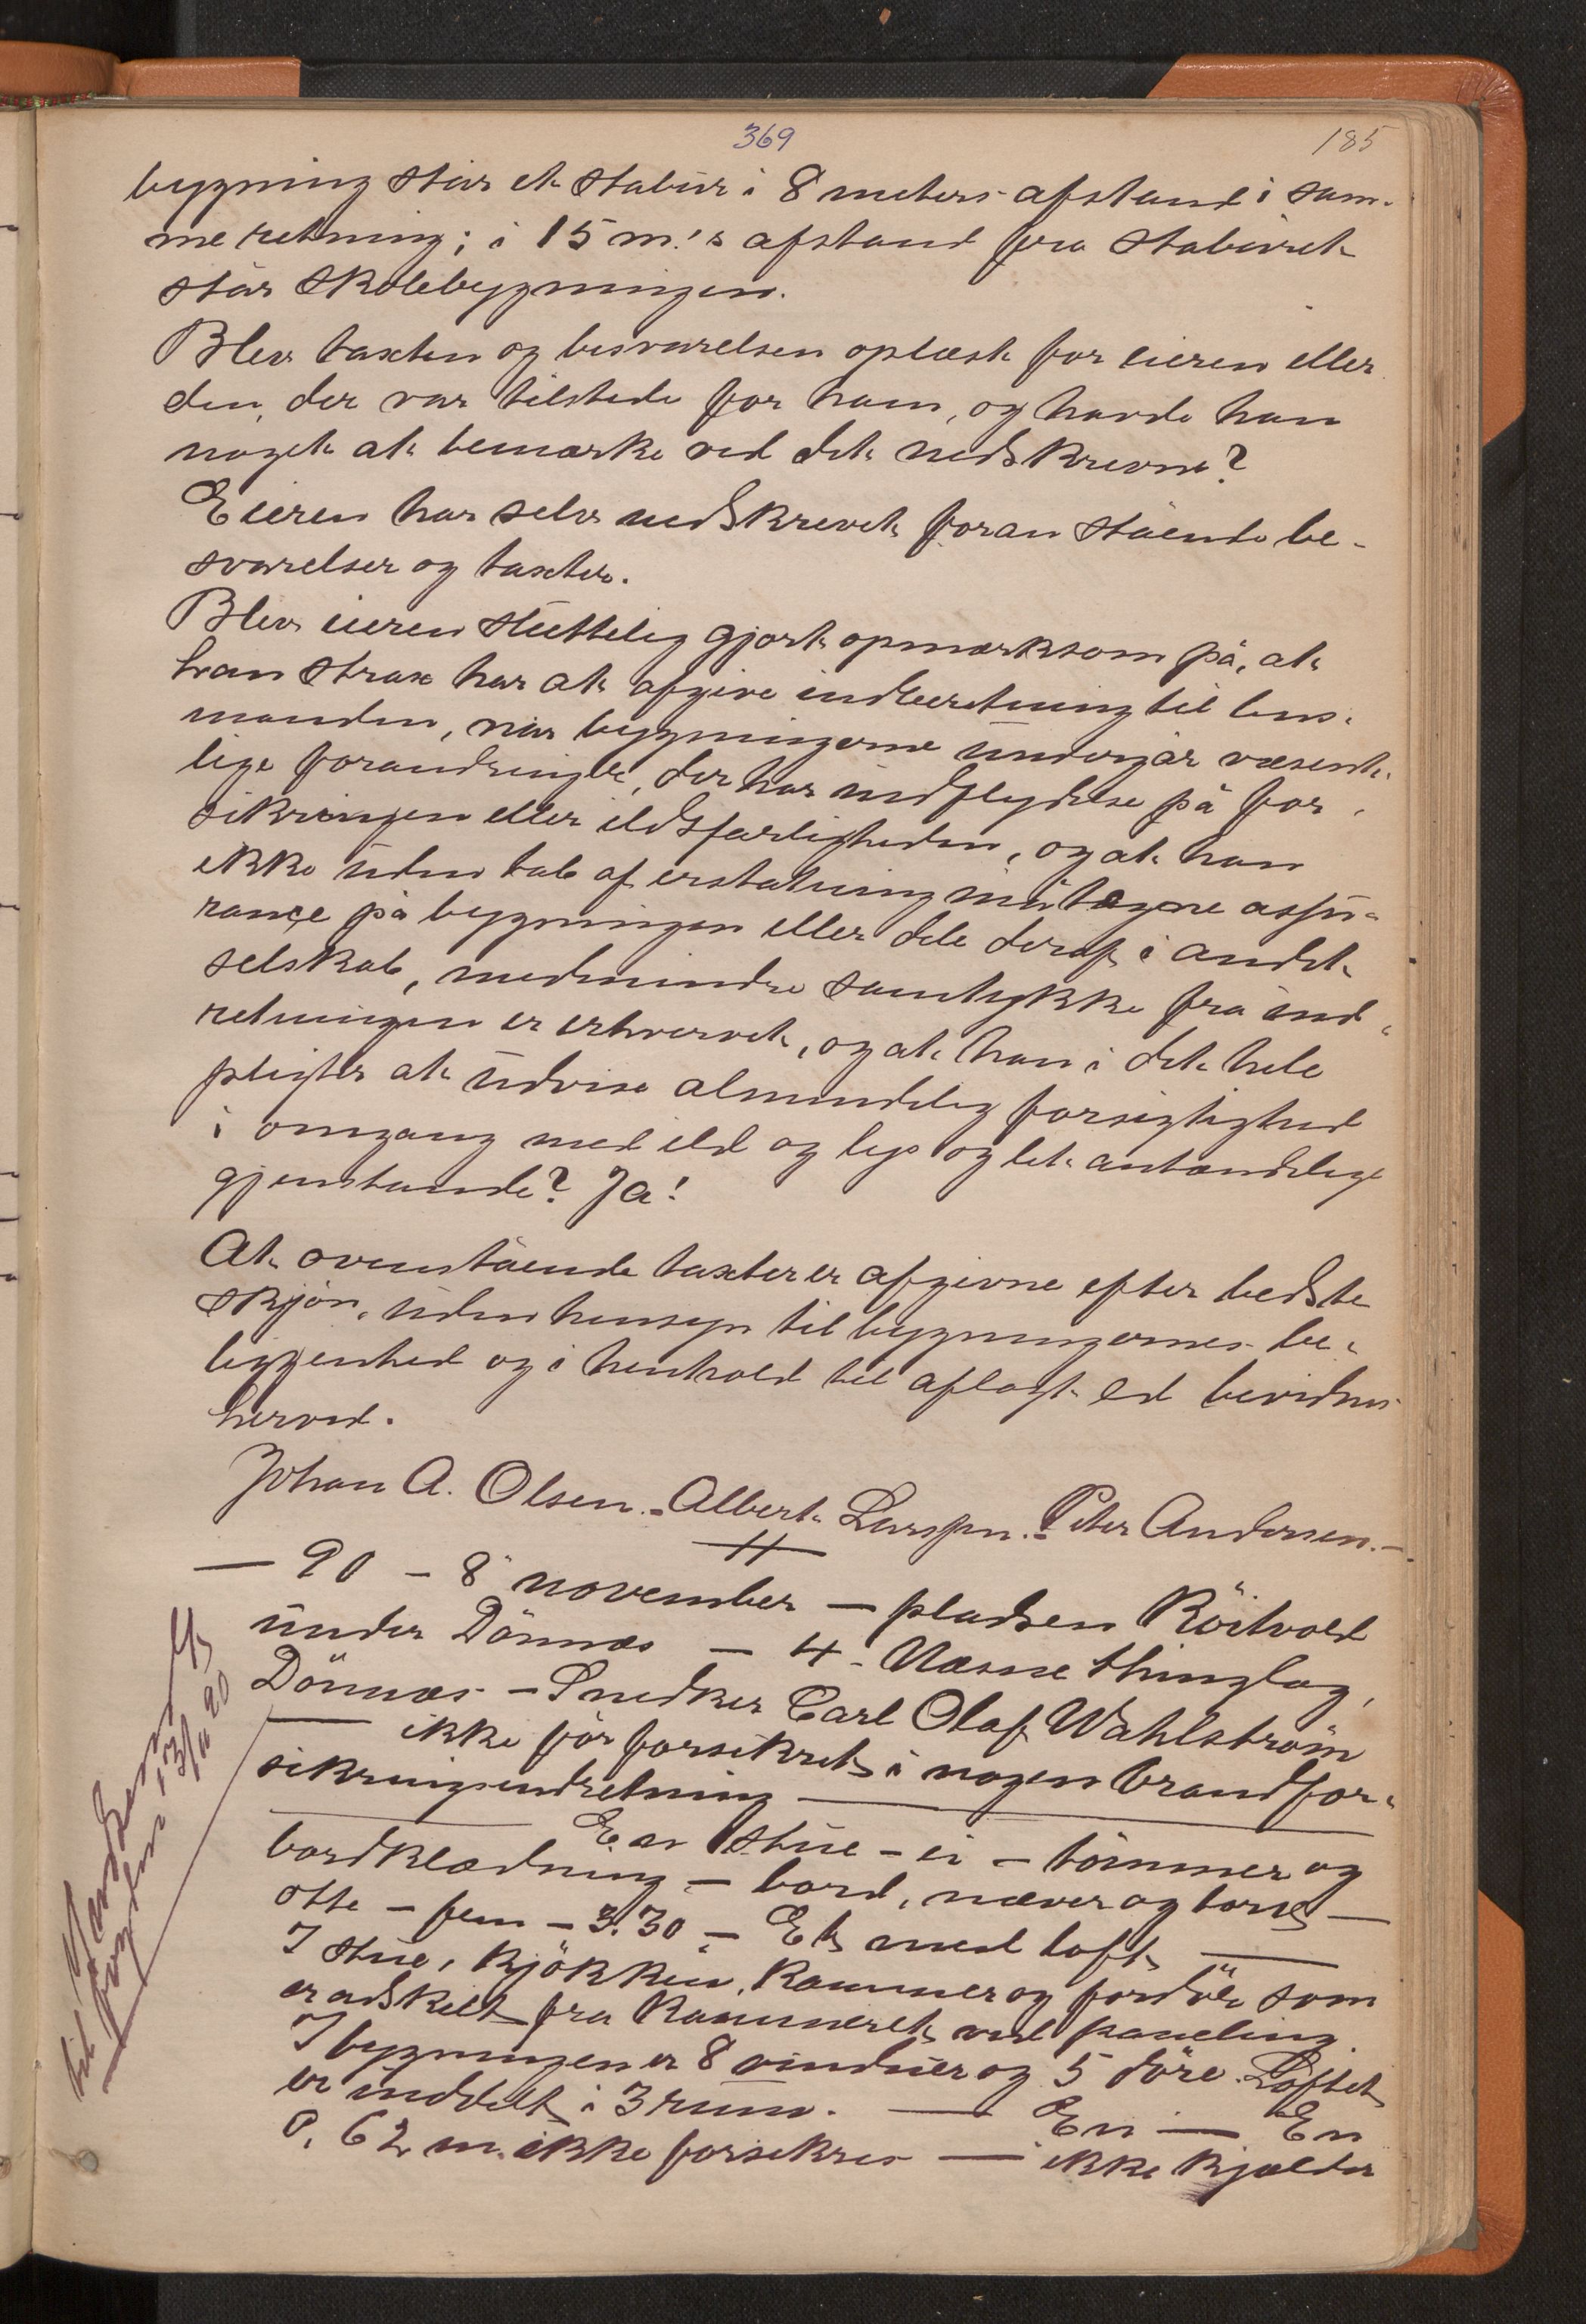 369
185
bygning står et stabur i 8 meters afstand i sam-
me retning; i 15 m.'s afstand fra staburet
står skolebygningen.
Blev taxten og besvarelsen oplæst for eieren eller
den, der var tilstede for ham, og havde han
noget at bemærke ved det nedskrevne?
Eieren har selv nedskrevet foranstående be-
svarelser og taxter.
Blev eieren sluttelig gjort opmærksom på, at
han strax har at afgive indberetning til lens-
manden, når bygningerne undergår væsent-
lige forandringer, der har indflydelse på for-
sikringen eller ildsfarligheden, og at han
ikke uden tab af erstatning må tegne assu-
rançe på bygningen eller dele deraf i andet
selskab, medmindre samtykke fra ind-
retningen er erhvervet, og at han i det hele
pligter at udvise almindelig forsigtighed
i omgang med ild og lys og let antændelige
gjenstande? Ja!
At ovenstående taxter er afgivne efter bedste
skjøn, uden hensyn til bygningernes be-
liggenhed og i henhold til aflagt ed bevidnes
herved.
Johan A. Olsen. - Albert Larssen. - Peter Andersen. -
— 90 - 8 november — pladsen Röitvold
under Dönnæs — 4 - Næsne thinglag,
Dönnæs - Snedker Carl Olaf Wahlström
— ikke før forsikret i nogen brandfor-
sikringsindretning —
En stue - ei - tömmer og
bordklædning - bord, næver og torv —
otte - fem - 3.30 - Et med loft —
I stue, kjökken, kammer og fordör som
er adskilt fra kammeret ved paneling
I bygningen er 8 vinduer og 5 döre. Loftet
er inddelt i 3 rum. — En — En
0,62 m. ikke forsikres — ikke kjælder
til
fogden 13/11 90